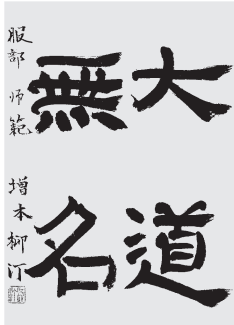 大道
無名
服部 师範 増本柳汀